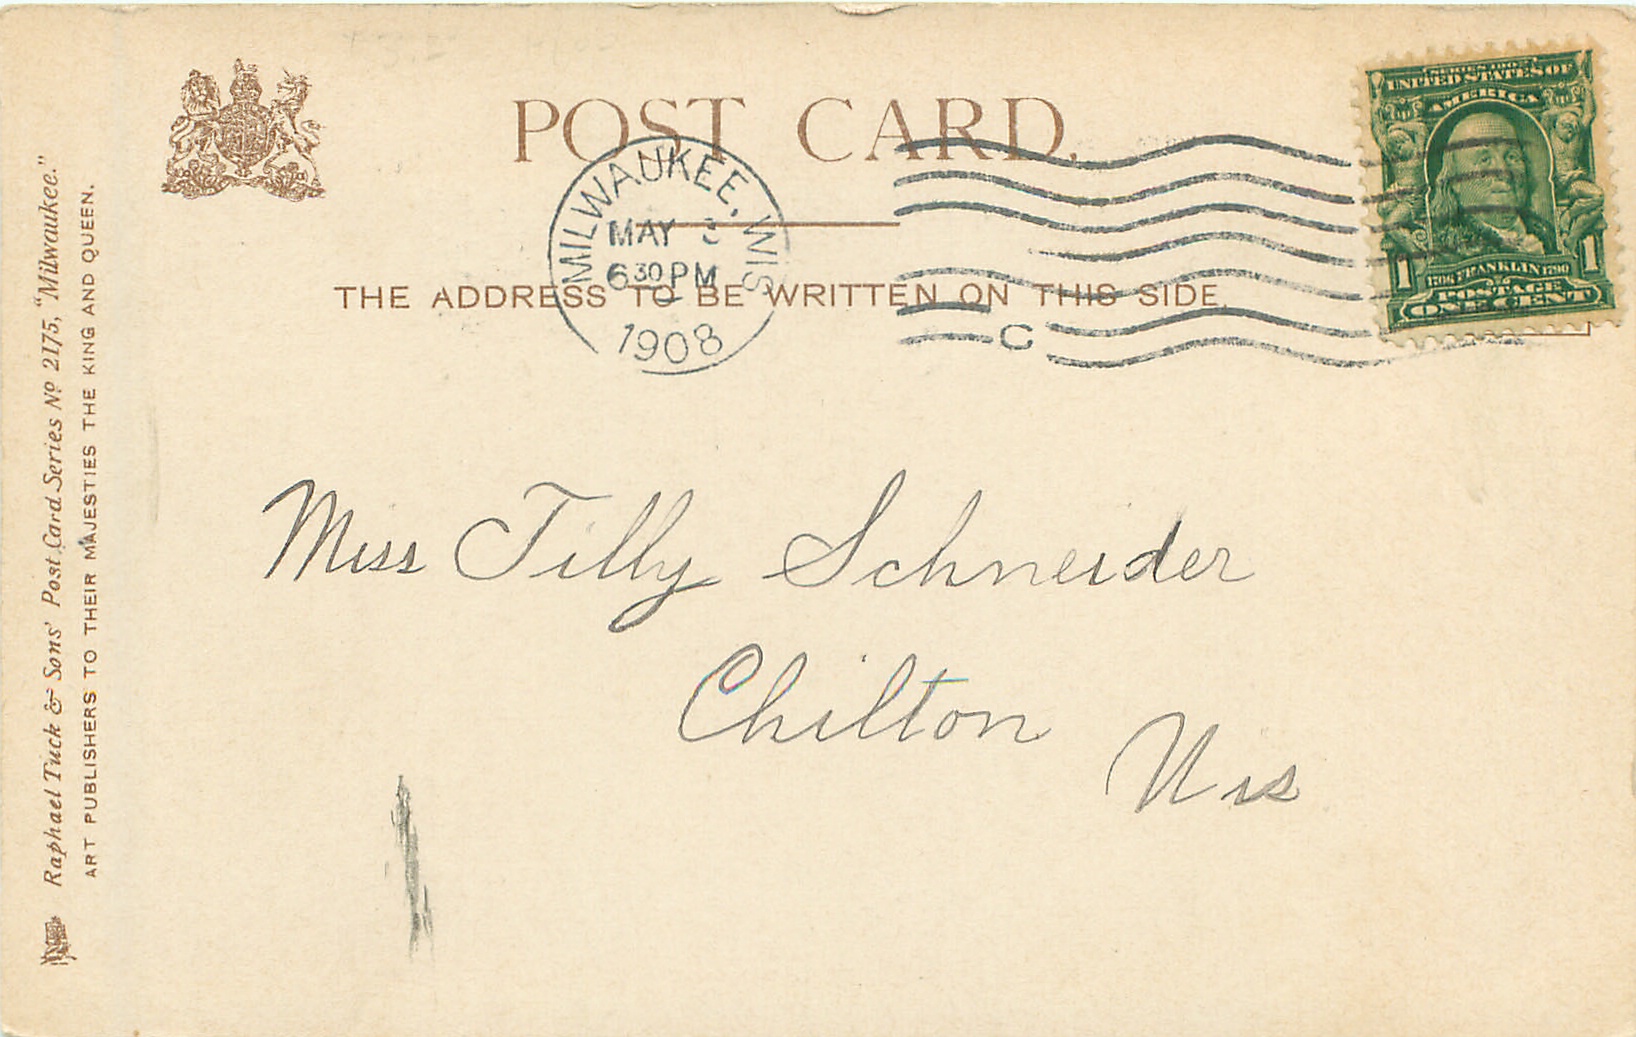 POST CARD.
THE ADDRESS TO BE WRITTEN ON THIS SIDE.
MILWAUKEE, WIS
MAY
6 30 PM
1908
C
SERIES 1902
UNITED STATES OF
AMERICA
1 1706 FRANKLIN 1790 1
POSTAGE
ONE CENT
Miss Tilly Schneider
Chilton
Wis
Raphael Tuck & Sons' Post Card Series No 2175, "Milwaukee."
ART PUBLISHERS TO THEIR MAJESTIES THE KING AND QUEEN.